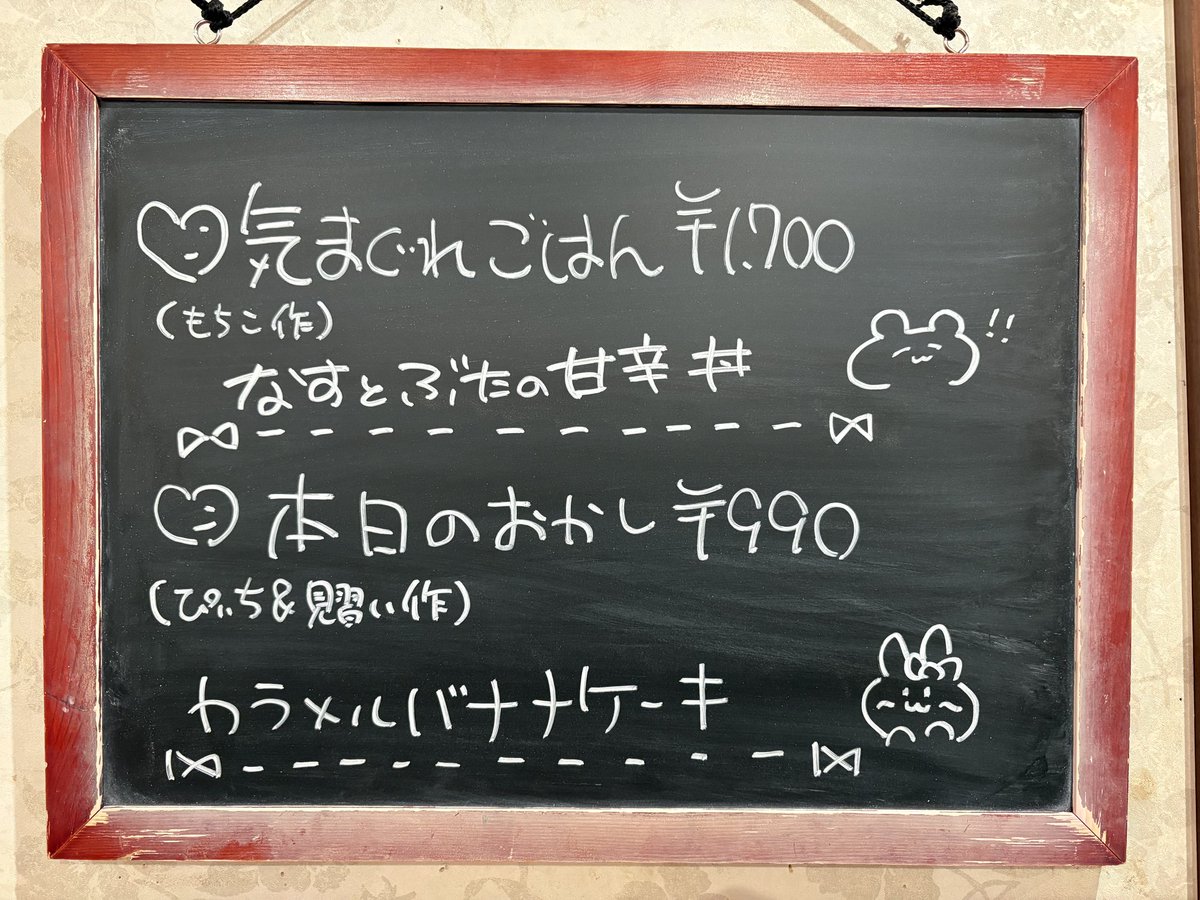 気まぐれごはん ¥1,700
(もちこ作)
!!
なすとぶたの甘辛丼
本日のおかし ¥990
(ぴぃち&見習い作)
カラメルバナナケーキ